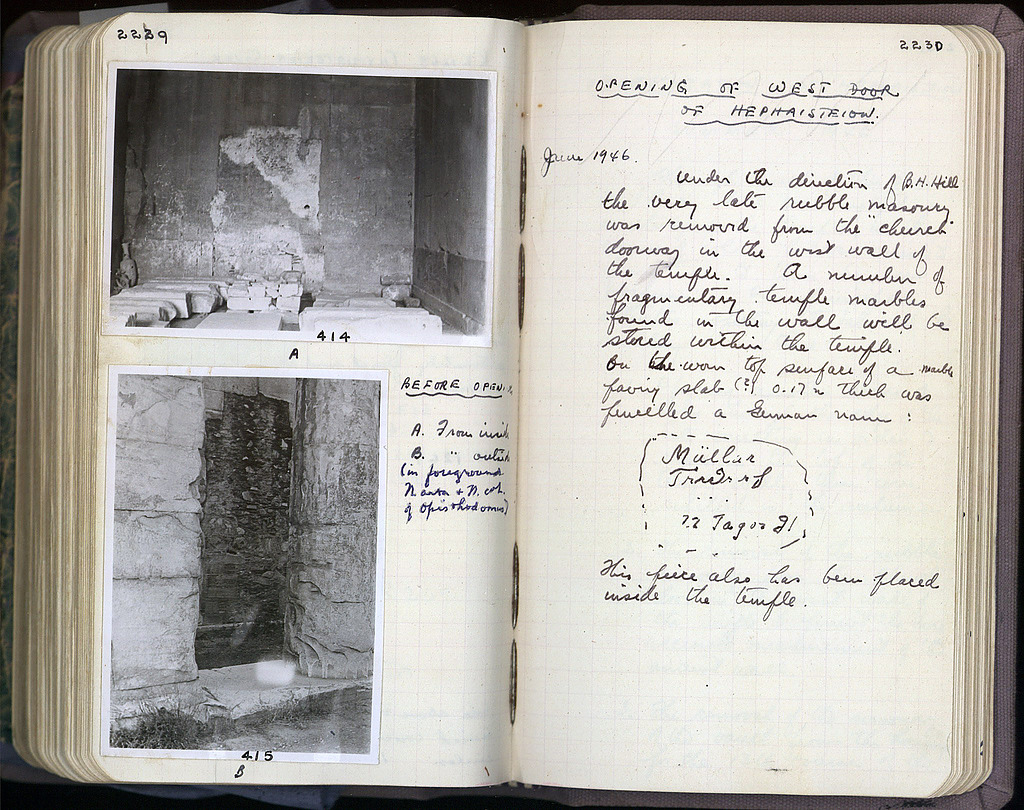 2229
414
A
BEFORE OPENI
A. From inside
B. " outside
(in foreground
N anta + N. col.
of Opisthodomos)
415
B
2230
OPENING OF WEST DOOR
OF HEPHAISTEION.
June 1946.
Under the direction of B.H. Hill
the very late rubble masonry
was removed from the "church"
doorway in the west wall of
the temple. A number of
fragmentary temple marbles
found in the wall will be
stored within the temple.
On the worn top surface of a marble
paving slab (?) 0.17m thick was
pencilled a German name:
Müller
...
22
This piece also has been placed
inside the temple.